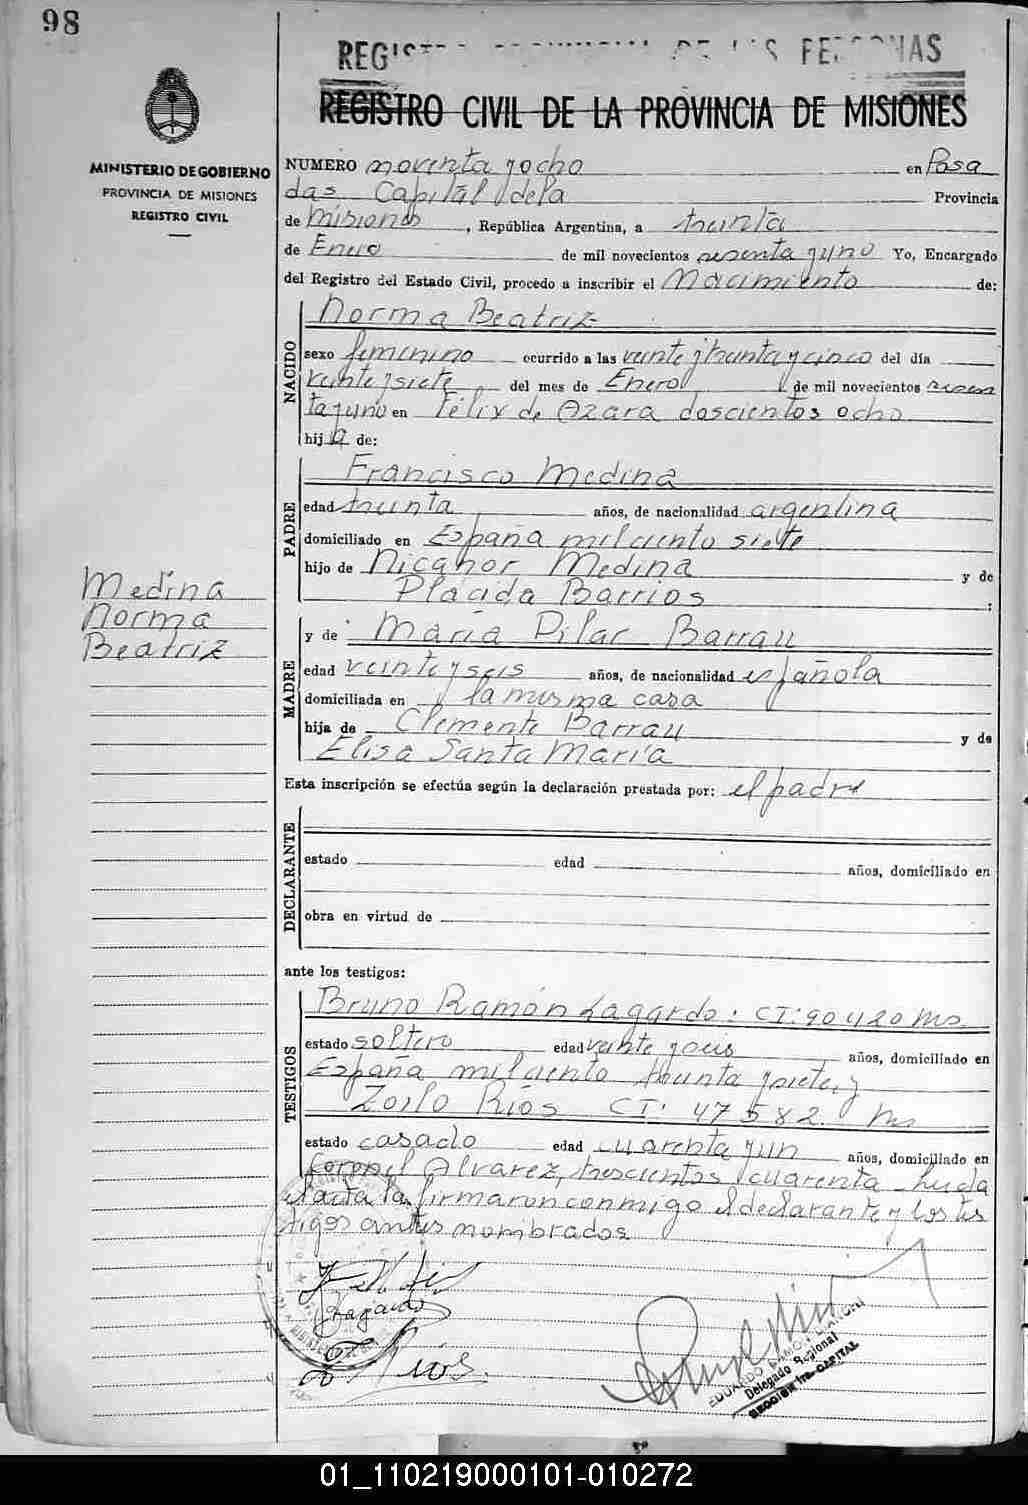 98
REGISTRO PROVINCIAL DE LAS PERSONAS
REGISTRO CIVIL DE LA PROVINCIA DE MISIONES
MINISTERIO DE GOBIERNO
PROVINCIA DE MISIONES
REGISTRO CIVIL
NUMERO noventa y ocho en Posa
das Capital de la Provincia
de Misiones, República Argentina, a treinta
de Enero de mil novecientos sesenta y uno Yo, Encargado
del Registro del Estado Civil, procedo a inscribir el Nacimiento de:
NACIDO
Norma Beatriz
sexo femenino ocurrido a las veinte y treinta y cinco del día
veinte y siete del mes de Enero de mil novecientos sesen
ta y uno en Félix de Azara doscientos ocho
hija de:
PADRE
Francisco Medina
edad treinta años, de nacionalidad argentina
domiciliado en España mil ciento siete
hijo de Nicanor Medina y de
Plácida Barrios :
Medina
Norma
Beatriz
MADRE
y de María Pilar Barrau
edad veinte y seis años, de nacionalidad española
domiciliada en la misma casa
hija de Clemente Barrau y de
Elisa Santa María
Esta inscripción se efectúa según la declaración prestada por: el padre
DECLARANTE
estado edad años, domiciliado en
obra en virtud de
ante los testigos:
TESTIGOS
Bruno Ramón Lagardo: CI: 90420 Ms
estado soltero edad veinte y seis años, domiciliado en
España mil ciento treinta y siete, y
Zoilo Ríos CI: 47582 Ms
estado casado edad cuarenta y un años, domiciliado en
Coronel Alvarez, trescientos cuarenta leída
el acta la firmaron conmigo el declarante y los tes
tigos antes nombrados
Ríos.
EDUARDO RAMON
Delegado Regional
SECCION 1ra. CAPITAL
01_110219000101-010272